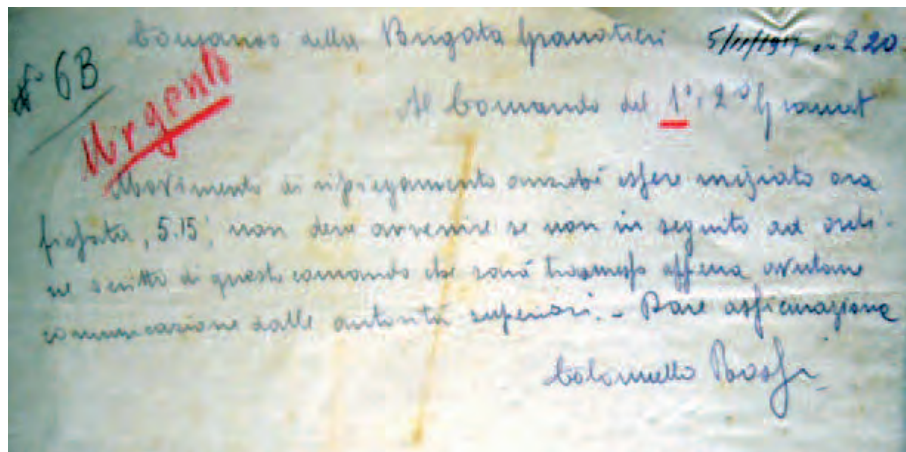 Comando della Brigata Granatieri 5/11/1917 ore 2.20.
N° 6B
Urgente
Al Comando del 1° e 2° Granat
Movimento di ripiegamento anziché essere iniziato ora
fissata, 5.15', non deve avvenire se non in seguito ad ordi-
ne scritto di questo comando che sarà trasmesso appena avutane
comunicazione dalle autorità superiori. - Dare assicurazione
Colonnello Rossi